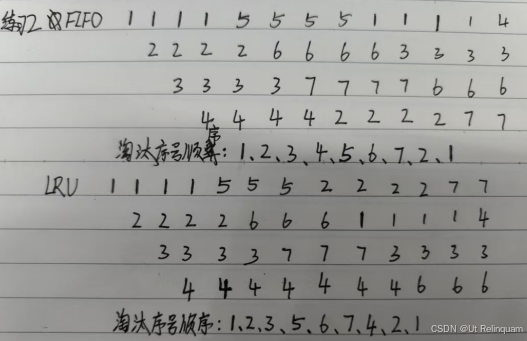 练习2 FIFO 1 1 1 1 5 5 5 5 1 1 1 1 4
2 2 2 2 6 6 6 6 3 3 3 3
3 3 3 3 7 7 7 7 6 6 6
4 4 4 4 2 2 2 2 7 7
淘汰序号顺序：1、2、3、4、5、6、7、2、1
LRU 1 1 1 1 5 5 5 2 2 2 2 7 7
2 2 2 2 6 6 6 1 1 1 1 4
3 3 3 3 7 7 7 3 3 3 3
4 4 4 4 4 4 4 6 6 6
淘汰序号顺序：1、2、3、5、6、7、4、2、1
CSDN @Ut Relinquam